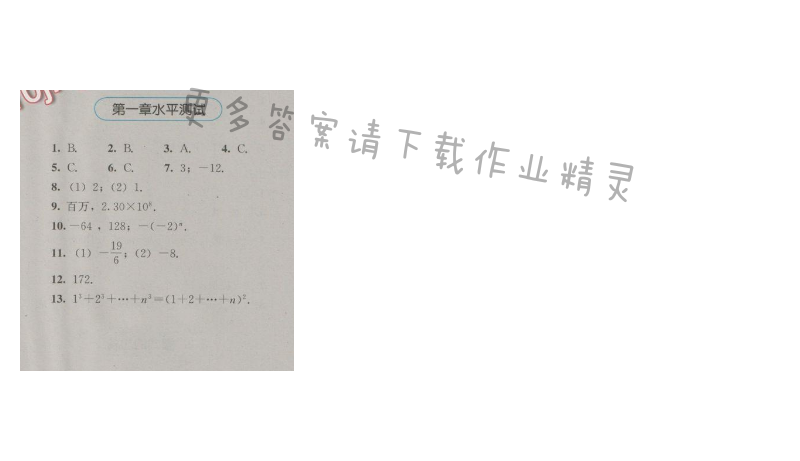 第一章水平测试
更多答案请下载作业精灵
1. B. 2. B. 3. A. 4. C.
5. C. 6. C. 7. 3; -12.
8. (1) 2; (2) 1.
9. 百万, 2.30×10⁸.
10. -64, 128; -(-2)ⁿ.
11. (1) -19/6; (2) -8.
12. 172.
13. 1³+2³+…+n³=(1+2+…+n)².